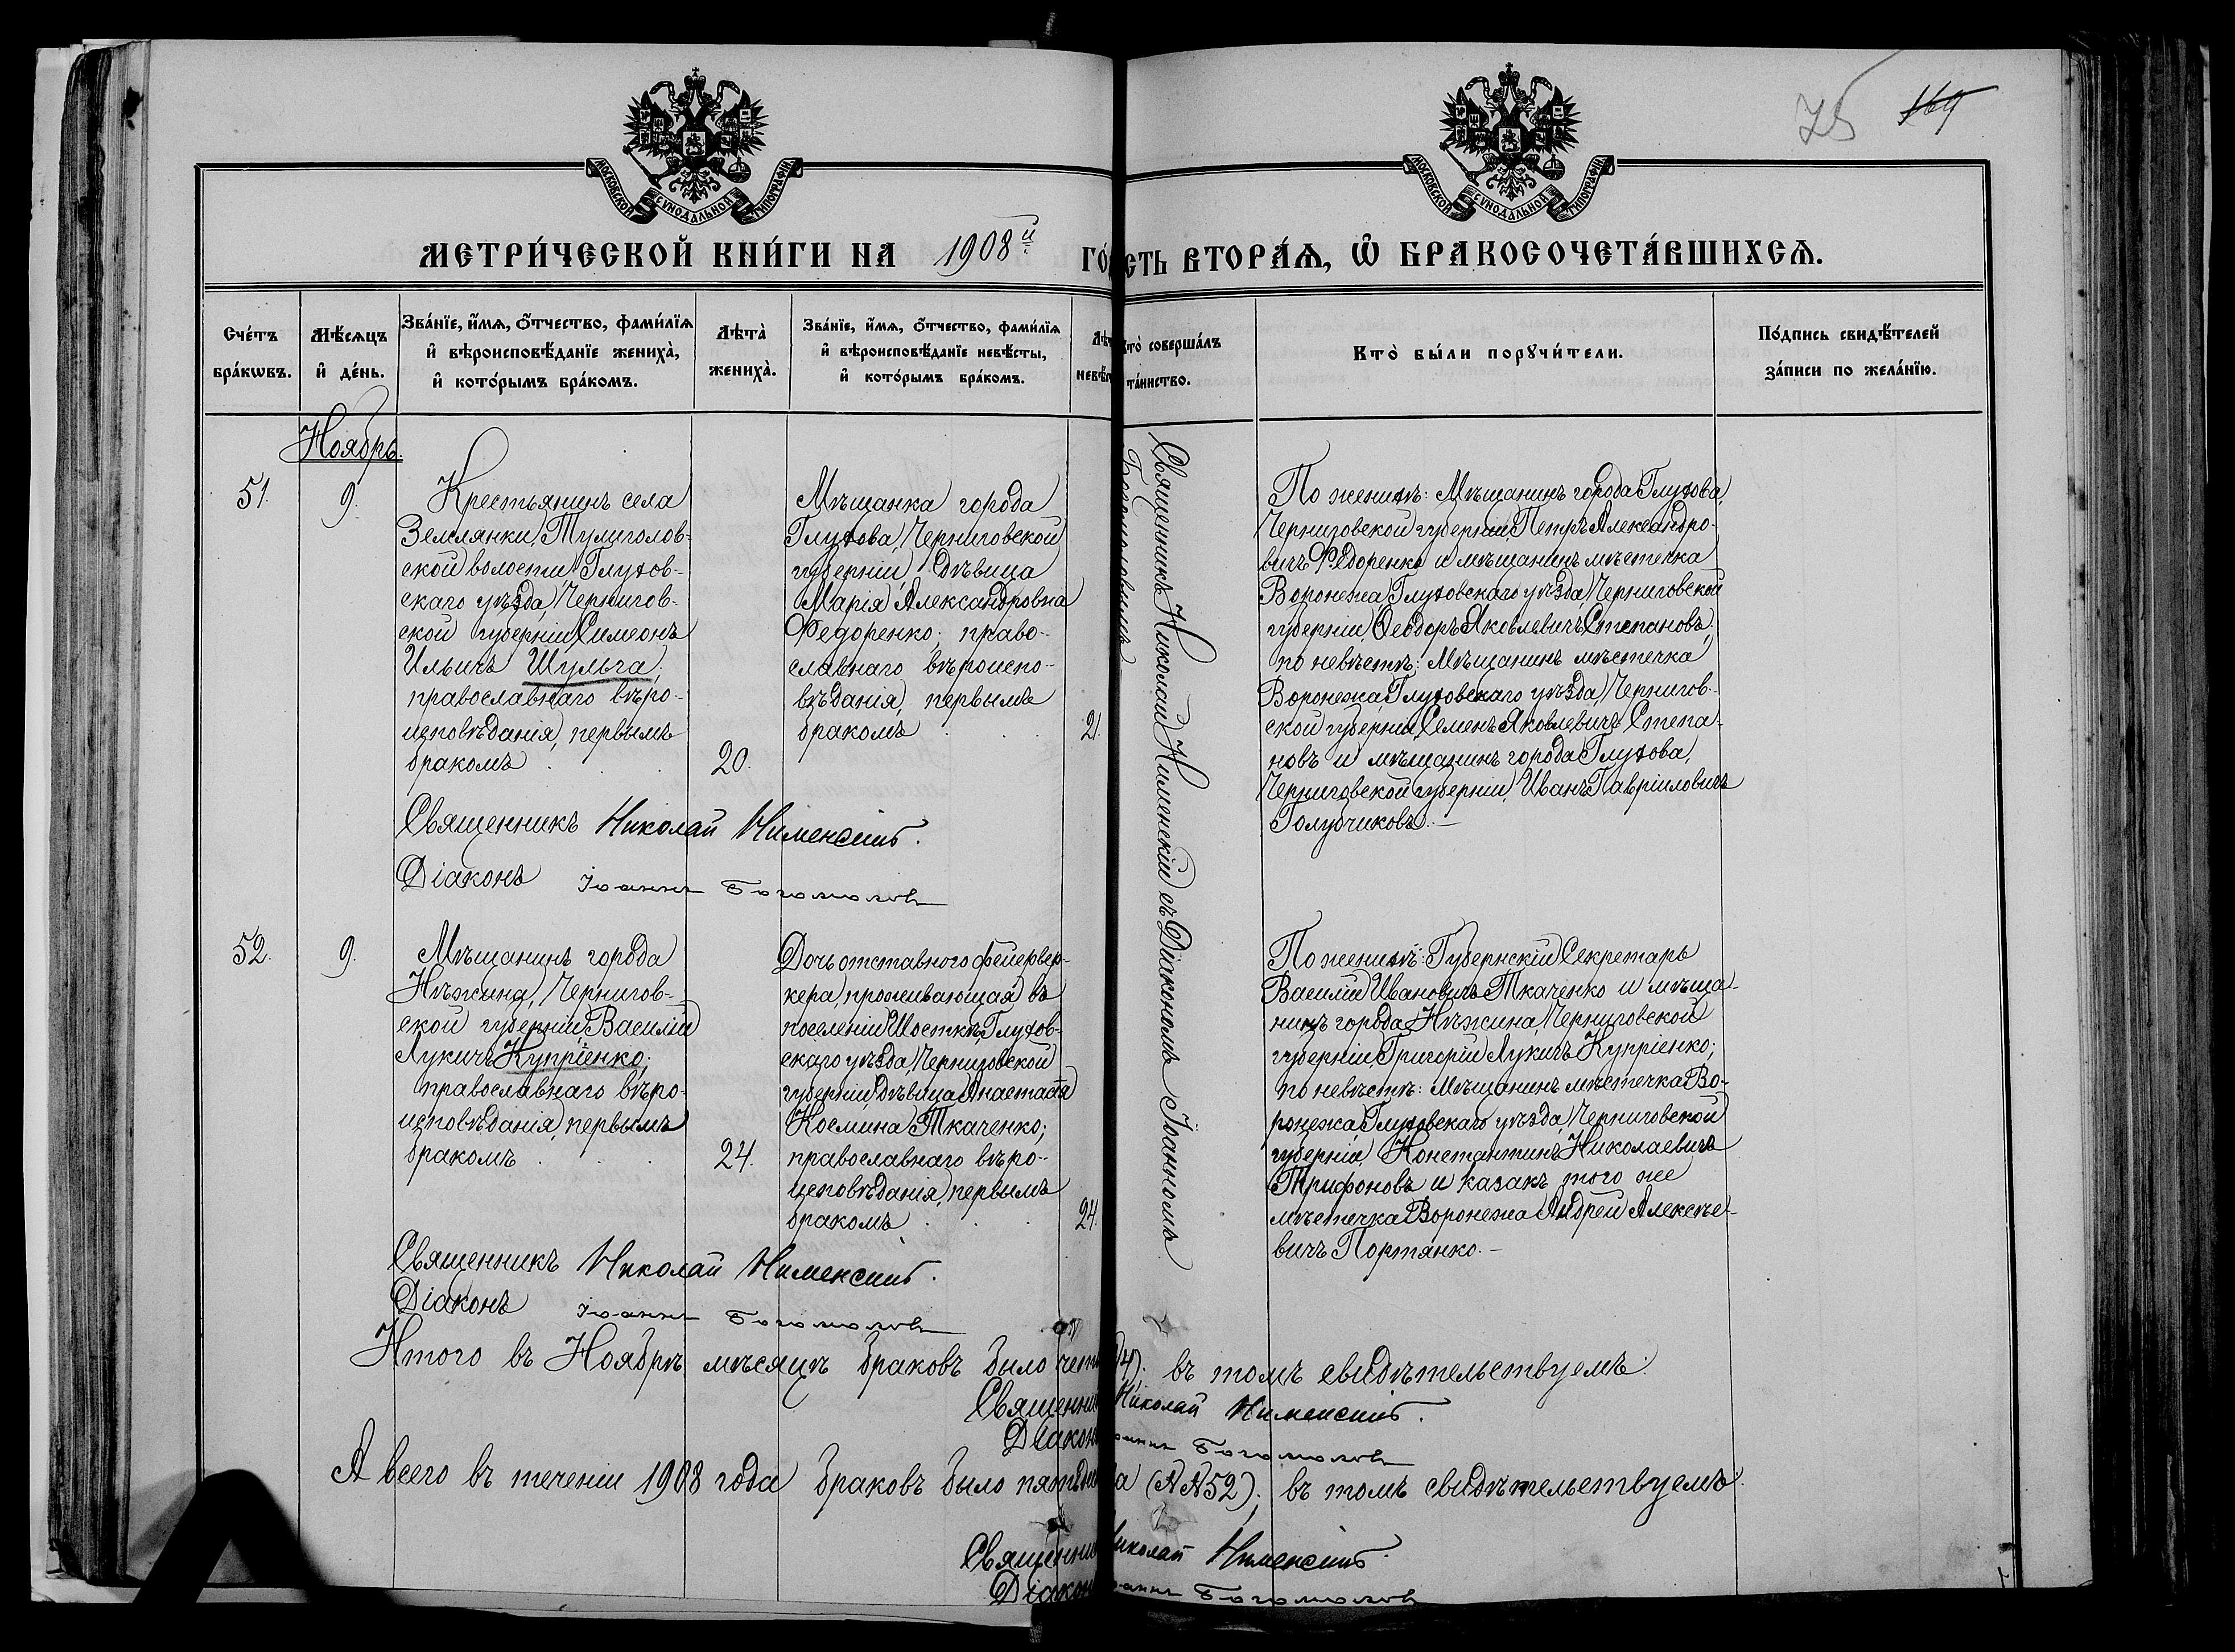 75 169
МОСКОВСКОЙ СѴНОДАЛЬНОЙ ТИПОГРАФІИ
МОСКОВСКОЙ СѴНОДАЛЬНОЙ ТИПОГРАФІИ
МЕТРИ́ЧЕСКОЙ КНИ́ГИ НА 1908й ГО́
СТЬ ВТОРА́Ѧ, Ѽ БРАКОСОЧЕТА́ВШИХСѦ.
Сче́тъ
бра́кѡвъ.
Мѣ́сяцъ
и҆ де́нь.
Зва́нїе, и҆́мѧ, о҆́тчество, фами́лїѧ
и҆ вѣроисповѣ́данїе жениха̀,
и҆ кото́рымъ бра́комъ.
Лѣта̀
жениха̀.
Зва́нїе, и҆́мѧ, о҆́тчество, фами́лїѧ
и҆ вѣроисповѣ́данїе невѣ́сты,
и҆ кото́рымъ бра́комъ.
Лѣт
невѣ́с
Кто̀ соверша́лъ
та́инство.
Кто̀ бы́ли порꙋчи́тели.
По́дпись свидѣ́телей
за́писи по жела́нїю.
Ноябрь.
51.
9.
Крестьянинъ села
Землянки, Тулиголов-
ской волости Глухов-
скаго уѣзда, Чернигов-
ской губерніи, Симеонъ
Ильичъ Шульга;
православнаго вѣро-
исповѣданія, первымъ
бракомъ . . .
20.
Мѣщанка города
Глухова, Черниговской
губерніи, дѣвица
Марія Александровна
Федоренко; право-
славнаго вѣроиспо-
вѣданія, первымъ
бракомъ . . .
21.
Священникъ Николай Нименскій съ Діакономъ Іоанномъ
Богомоловымъ
По женихѣ: Мѣщанинъ города Глухова,
Черниговской губерніи, Петръ Александро-
вичъ Федоренко и мѣщанинъ мѣстечка
Воронежа, Глуховскаго уѣзда, Черниговской
губерніи, Ѳеодоръ Яковлевичъ Степановъ;
по невѣстѣ: Мѣщанинъ мѣстечка
Воронежа, Глуховскаго уѣзда, Чернигов-
ской губерніи, Семенъ Яковлевичъ Степа-
новъ и мѣщанинъ города Глухова,
Черниговской губерніи, Иванъ Гавріиловичъ
Голубчиковъ.—
Священникъ Николай Нименскій.
Діаконъ Іоаннъ Богомоловъ
52.
9.
Мѣщанинъ города
Нѣжина, Чернигов-
ской губерніи, Василій
Лукичъ Купріенко;
православнаго вѣро-
исповѣданія, первымъ
бракомъ . . .
24.
Дочь отставного фейервер-
кера, проживающая въ
поселеніи Шосткѣ, Глухов-
скаго уѣзда, Черниговской
губерніи, дѣвица Анастасія
Космина Ткаченко;
православнаго вѣро-
исповѣданія, первымъ
бракомъ . . .
24.
По женихѣ: Губернскій Секретарь
Василій Ивановичъ Ткаченко и мѣща-
нинъ города Нѣжина, Черниговской
губерніи, Григорій Лукичъ Купріенко;
по невѣстѣ: Мѣщанинъ мѣстечка Во-
ронежа, Глуховскаго уѣзда, Черниговской
губерніи, Константинъ Николаевичъ
Трифоновъ и казакъ того же
мѣстечка Воронежа Андрей Алексѣе-
вичъ Портянко.—
Священникъ Николай Нименскій.
Діаконъ Іоаннъ Богомоловъ
Итого въ Ноябрѣ мѣсяцѣ браковъ было четы 4); въ томъ свидѣтельствуемъ:
Священни Николай Нименскій.
Діакон оаннъ Богомоловъ
А всего въ теченіи 1908 года браковъ было пятьде а (№№52); въ томъ свидѣтельствуемъ:
Священни иколай Нименскій.
Діакон оаннъ Богомоловъ